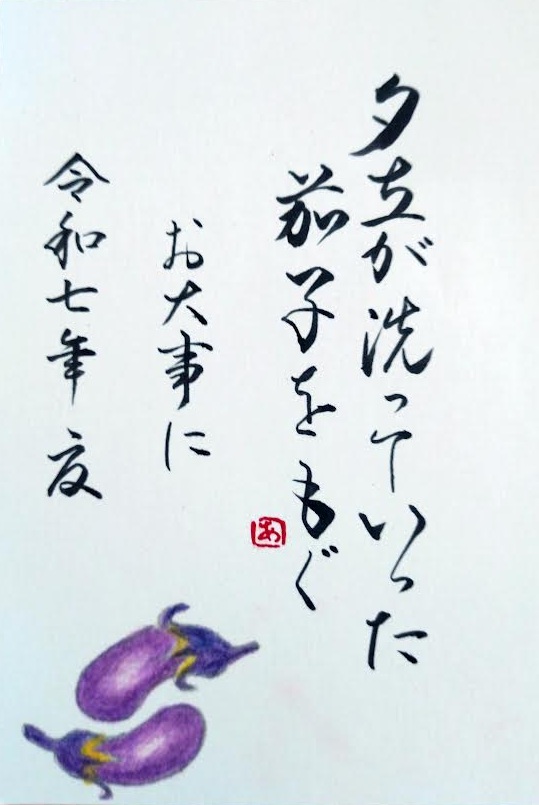 夕立が洗っていった
茄子をもぐ
あ
お大事に
令和七年夏